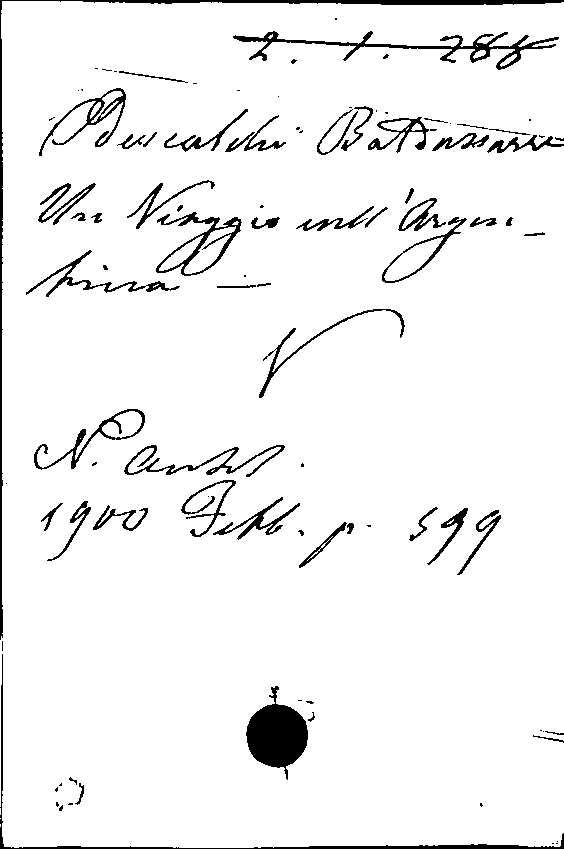 2. 1. 288
Odescalchi Baldassarre
Un Viaggio nell'Argen-
tina —
N. Antol.
1900 Febb. p. 599